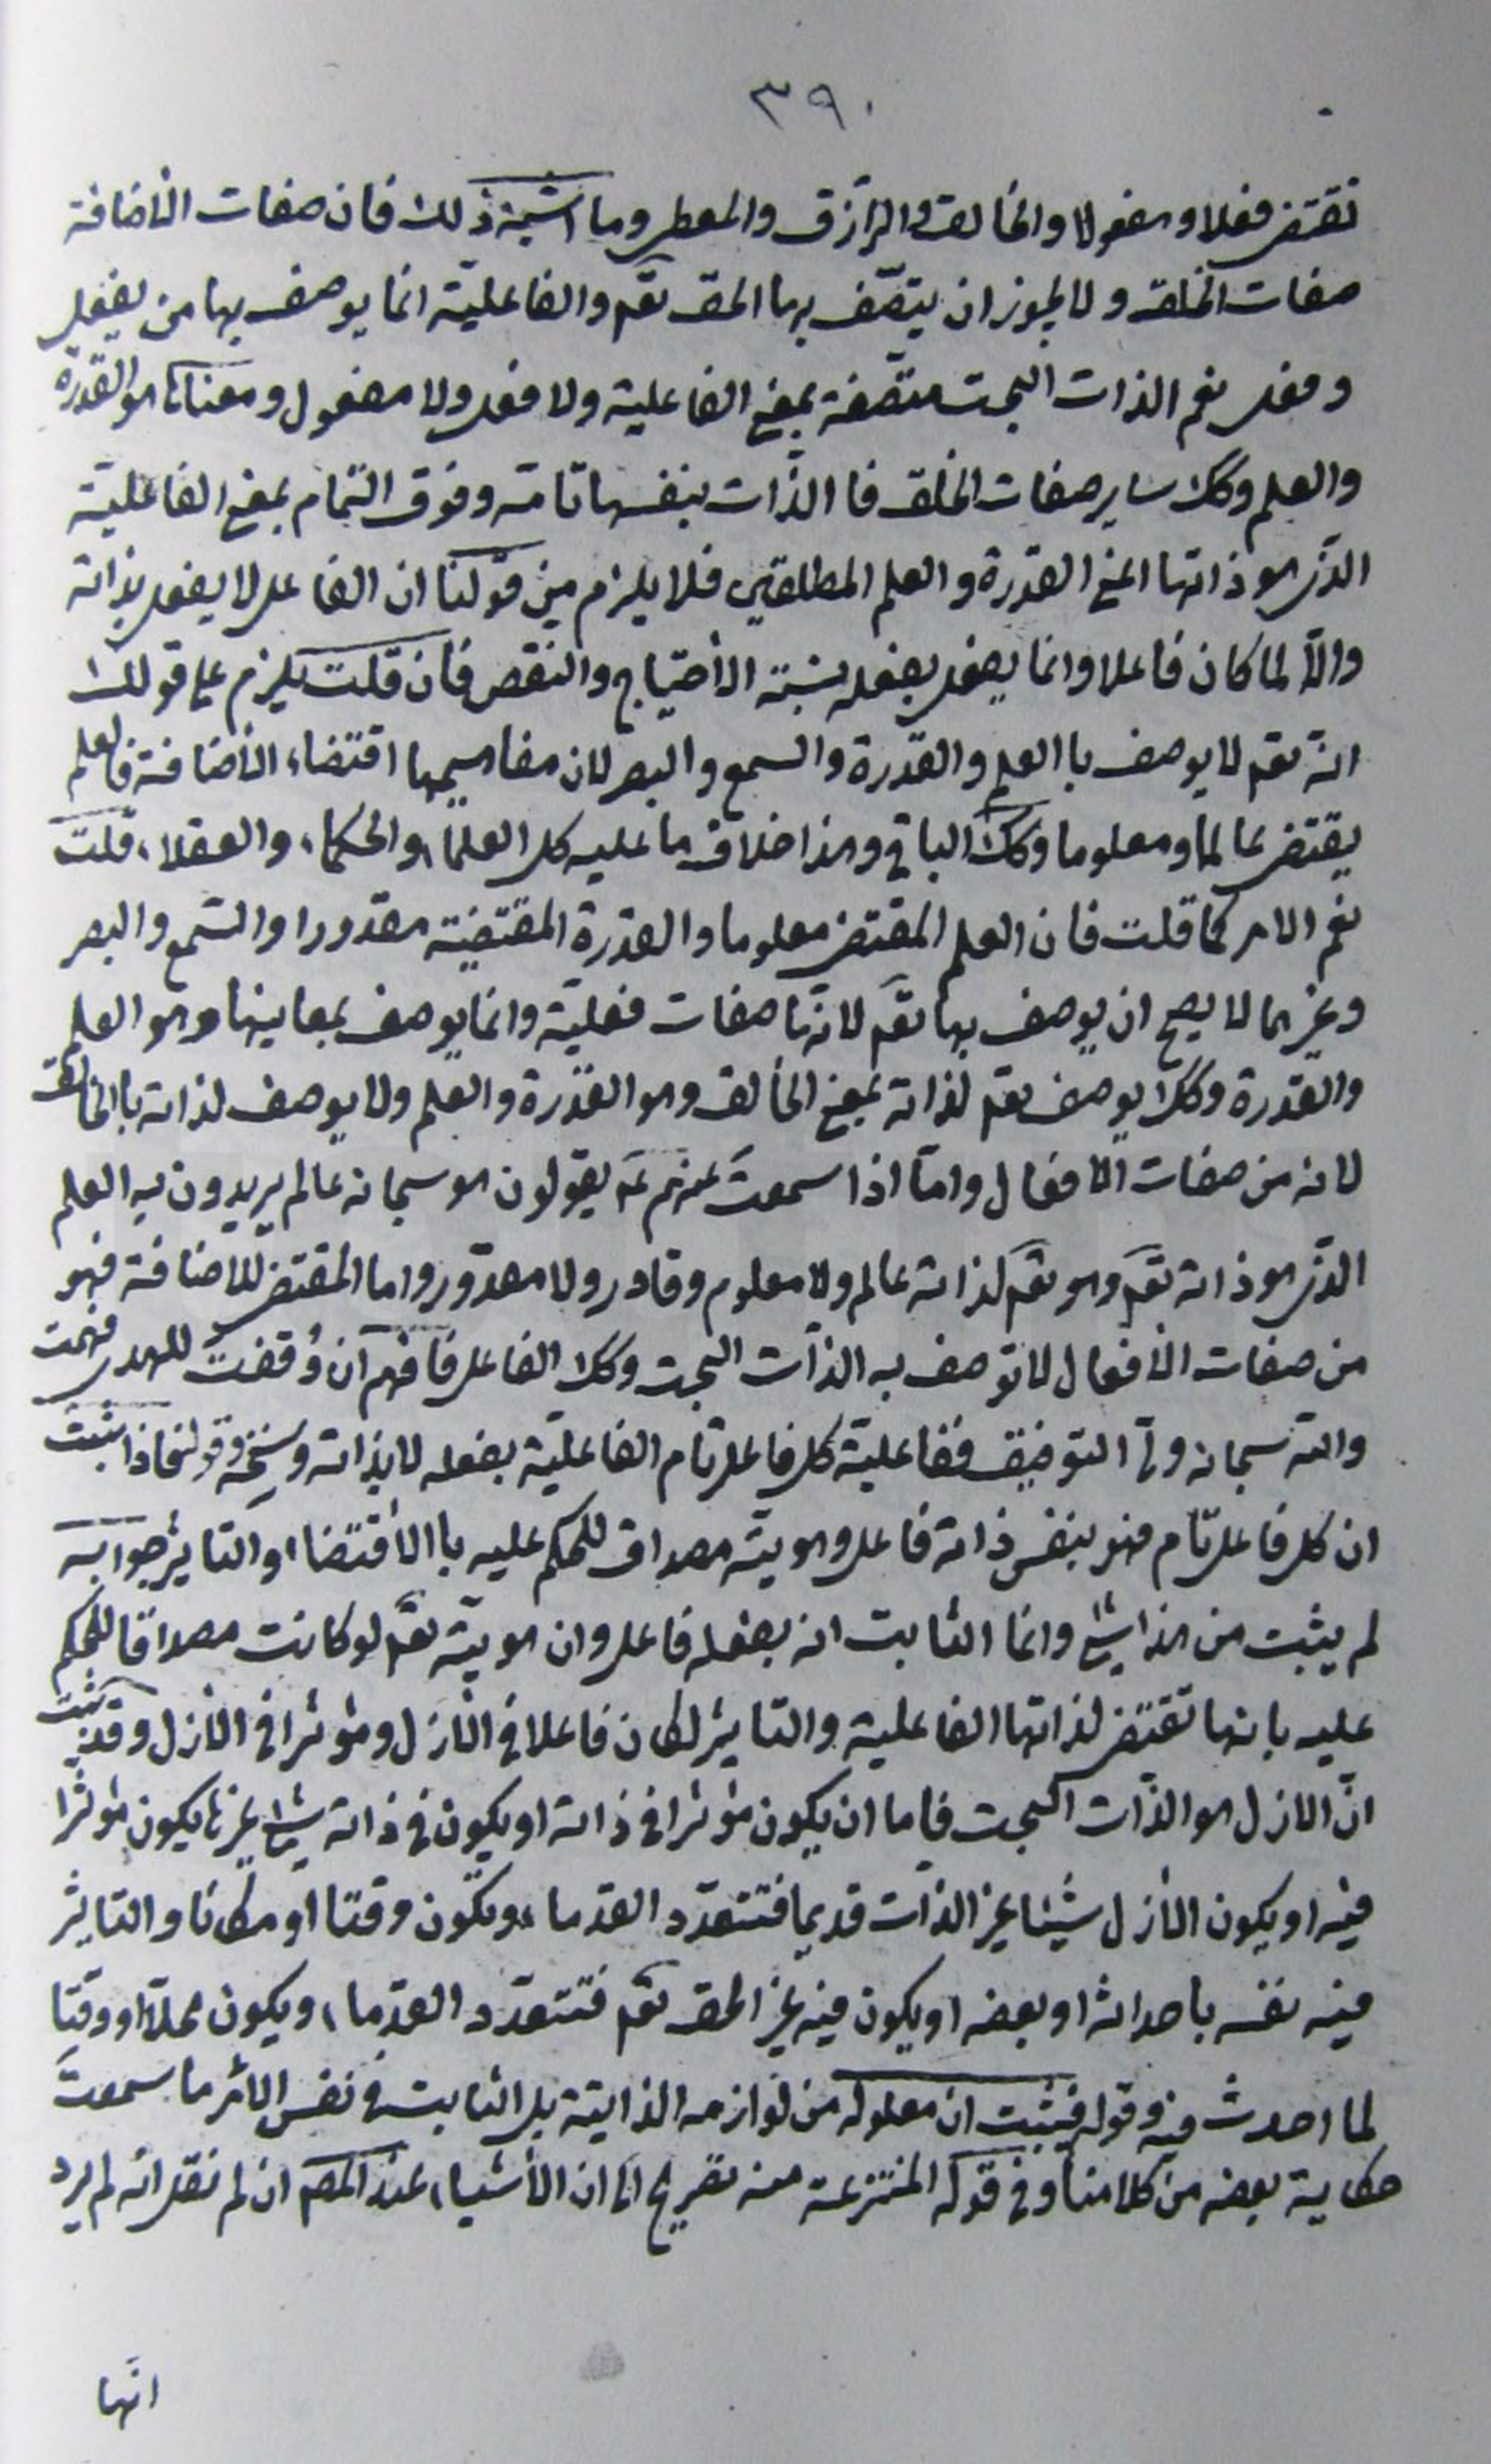 ٣٩٠
تقتضى فعلا ومفعولا والخالق والرازق والمعطى وما اشبه ذلك فان صفات الأضافة
صفات الخلق ولا يجوز ان يتصف بها الحق تعم والفاعلية انما يوصف بها من يفعل
وفعل نعم الذات البحت متصفة بمعنى الفاعلية ولا فعل ولا مفعول ومعناها هو القدرة
والعلم وكك ساير صفات الخلق فا الذات بنفسها تامة وفوق التمام بمعنى الفاعلية
الذى هو ذاتها اعنى القدرة والعلم المطلقين فلا يلزم من قولنا ان الفاعل لا يفعل بذاته
والا لما كان فاعلا وانما يفعل بفعله نسبة الأحتياج والنقص فان قلت يلزم على قولك
انه تعم لا يوصف با العلم والقدرة والسمع والبصر لان مفاهيمها اقتضاء الأضافة فالعلم
يقتضى عالما ومعلوما وكك الباقى وهذا خلاف ما عليه كل العلماء والحكماء والعقلاء قلت
نعم الامر كما قلت فان العلم المقتضى معلوما والقدرة المقتضية مقدورا والسمع والبصر
وغيرهما لا يصح ان يوصف بها تعم لانها صفات فعلية وانما يوصف بمعانيها وهو العلم
والقدرة وكك يوصف تعم لذاته بمعنى الخالق وهو القدرة والعلم ولا يوصف لذاته با الخالق
لانه من صفات الافعال واما اذا سمعت عنهم عم يقولون هو سبحانه عالم يريدون به العلم
الذى هو ذاته تعم وهو تعم لذاته عالم ولا معلوم وقادر ولا مقدور واما المقتضى للاضافة فهو
من صفات الأفعال لا توصف به الذات البحت وكك الفاعل فافهم ان وفقت للهدى فهمت
والله سبحانه ولى التوفيق ففاعلية كل فاعل تام الفاعلية بفعله لا بذاته وسنخه وقوله فاذا ثبت
ان كل فاعل تام فهو بنفس ذاته فاعل وهويته مصداق للحكم عليه با الأقتضاء والتاثير جوابه
لم يثبت من هذا شئ وانما الثابت انه بفعله فاعل وان هويته تعم لو كانت مصداقا للحكم
عليه بانها تقتضى لذاتها الفاعلية والتاثير لكان فاعلا فى الأزل ومؤثرا فى الأزل وقد ثبت
ان الازل هو الذات البحت فاما ان يكون مؤثرا فى ذاته او يكون فى ذاته شئ غيرها يكون مؤثرا
فيه او يكون الأزل شيئا غير الذات قديما فتتعدد القدماء ويكون وقتا او مكانا والتاثير
فيه نفسه باحداثه او بعضه او يكون فيه غير الحق تعم فتتعدد القدماء ويكون محلا او وقتا
لما احدث فيه وقوله فيثبت ان معلوله من لوازمه الذاتية بل الثابت فى نفس الأمر ما سمعت
حكاية بعضه من كلامنا وفى قوله المنتزعة منه تصريح الى ان الأشياء عند المصم ان لم نقل انه لم يرد
انها